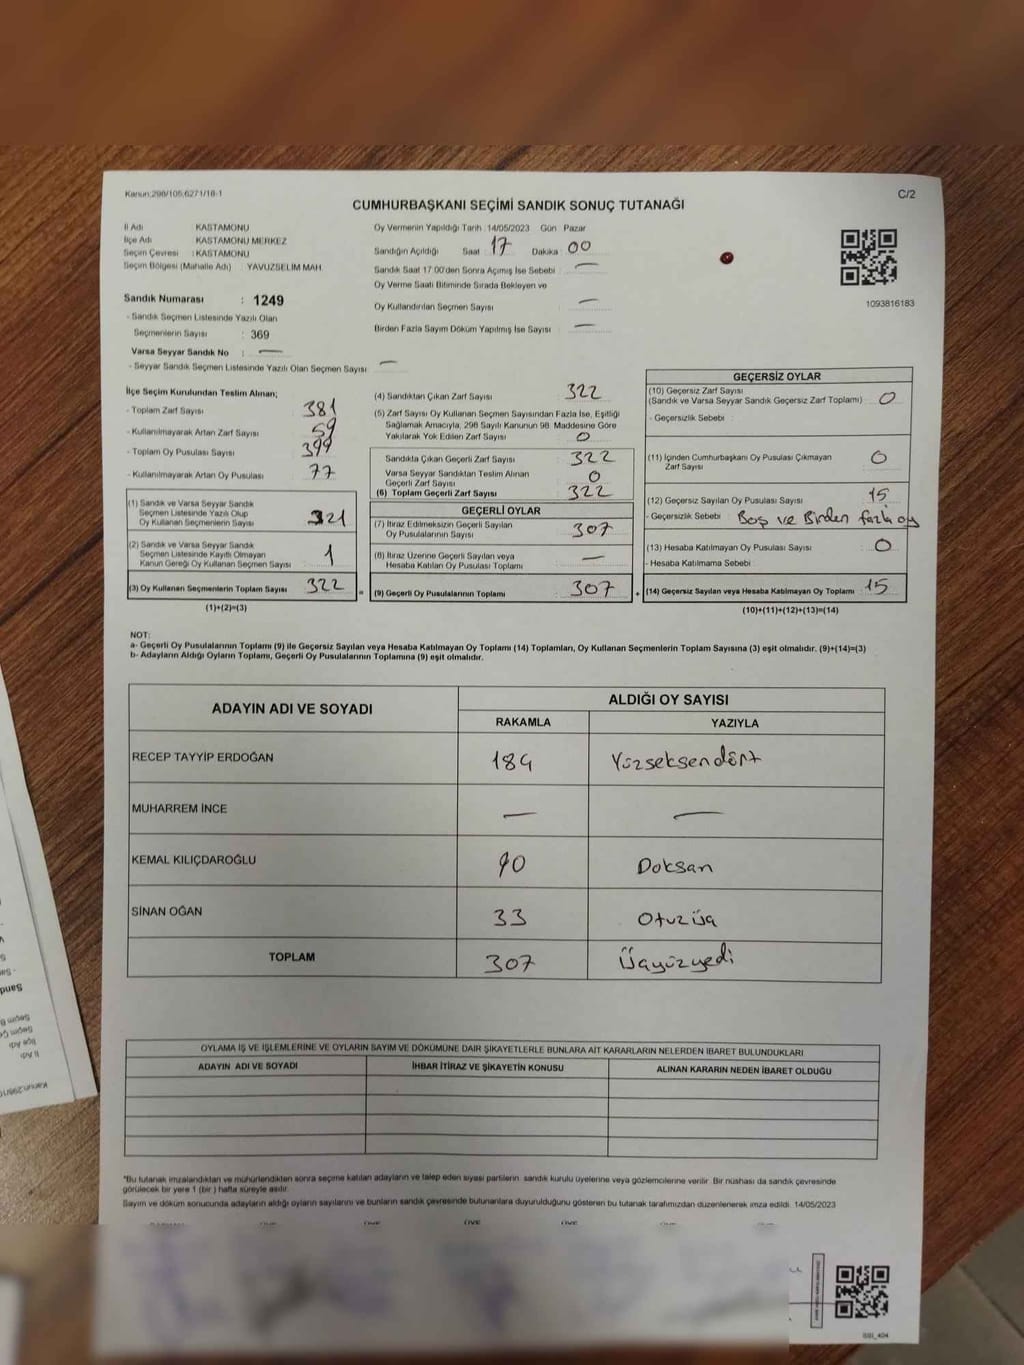 Kanun:298/105,6271/18-1
C/2
CUMHURBAŞKANI SEÇİMİ SANDIK SONUÇ TUTANAĞI
İl Adı KASTAMONU
İlçe Adı KASTAMONU MERKEZ
Seçim Çevresi : KASTAMONU
Seçim Bölgesi (Mahalle Adı) YAVUZSELİM MAH.
Sandık Numarası : 1249
- Sandık Seçmen Listesinde Yazılı Olan
Seçmenlerin Sayısı : 369
Varsa Seyyar Sandık No : —
- Seyyar Sandık Seçmen Listesinde Yazılı Olan Seçmen Sayısı —
Oy Vermenin Yapıldığı Tarih :14/05/2023 Gün Pazar
Sandığın Açıldığı Saat : 17 Dakika : 00
Sandık Saat 17.00'den Sonra Açılmış İse Sebebi : —
Oy Verme Saati Bitiminde Sırada Bekleyen ve
Oy Kullandırılan Seçmen Sayısı : —
Birden Fazla Sayım Döküm Yapılmış İse Sayısı : —
1093816183
İlçe Seçim Kurulundan Teslim Alınan;
- Toplam Zarf Sayısı : 381
- Kullanılmayarak Artan Zarf Sayısı : 59
- Toplam Oy Pusulası Sayısı : 399
- Kullanılmayarak Artan Oy Pusulası : 77
(1) Sandık ve Varsa Seyyar Sandık
Seçmen Listesinde Yazılı Olup
Oy Kullanan Seçmenlerin Sayısı : 321
(2) Sandık ve Varsa Seyyar Sandık
Seçmen Listesinde Kayıtlı Olmayan
Kanun Gereği Oy Kullanan Seçmen Sayısı : 1
(3) Oy Kullanan Seçmenlerin Toplam Sayısı : 322
(1)+(2)=(3)
=
(4) Sandıktan Çıkan Zarf Sayısı : 322
(5) Zarf Sayısı Oy Kullanan Seçmen Sayısından Fazla İse, Eşitliği
Sağlamak Amacıyla, 298 Sayılı Kanunun 98. Maddesine Göre
Yakılarak Yok Edilen Zarf Sayısı : 0
Sandıkta Çıkan Geçerli Zarf Sayısı : 322
Varsa Seyyar Sandıktan Teslim Alınan
Geçerli Zarf Sayısı : 0
(6) Toplam Geçerli Zarf Sayısı : 322
GEÇERLİ OYLAR
(7) İtiraz Edilmeksizin Geçerli Sayılan
Oy Pusulalarının Sayısı : 307
(8) İtiraz Üzerine Geçerli Sayılan veya
Hesaba Katılan Oy Pusulası Toplamı : —
(9) Geçerli Oy Pusulalarının Toplamı : 307
+
GEÇERSİZ OYLAR
(10) Geçersiz Zarf Sayısı
(Sandık ve Varsa Seyyar Sandık Geçersiz Zarf Toplamı) : 0
- Geçersizlik Sebebi :
(11) İçinden Cumhurbaşkanı Oy Pusulası Çıkmayan
Zarf Sayısı : 0
(12) Geçersiz Sayılan Oy Pusulası Sayısı : 15
- Geçersizlik Sebebi : Boş ve Birden fazla oy
(13) Hesaba Katılmayan Oy Pusulası Sayısı : 0
- Hesaba Katılmama Sebebi :
(14) Geçersiz Sayılan veya Hesaba Katılmayan Oy Toplamı : 15
(10)+(11)+(12)+(13)=(14)
NOT:
a- Geçerli Oy Pusulalarının Toplamı (9) ile Geçersiz Sayılan veya Hesaba Katılmayan Oy Toplamı (14) Toplamları, Oy Kullanan Seçmenlerin Toplam Sayısına (3) eşit olmalıdır. (9)+(14)=(3)
b- Adayların Aldığı Oyların Toplamı, Geçerli Oy Pusulalarının Toplamına (9) eşit olmalıdır.
ADAYIN ADI VE SOYADI ALDIĞI OY SAYISI
RAKAMLA YAZIYLA
RECEP TAYYİP ERDOĞAN 184 Yüzseksendört
MUHARREM İNCE — —
KEMAL KILIÇDAROĞLU 90 Doksan
SİNAN OĞAN 33 Otuzüç
TOPLAM 307 Üçyüzyedi
OYLAMA İŞ VE İŞLEMLERİNE VE OYLARIN SAYIM VE DÖKÜMÜNE DAİR ŞİKAYETLERLE BUNLARA AİT KARARLARIN NELERDEN İBARET BULUNDUKLARI
ADAYIN ADI VE SOYADI İHBAR İTİRAZ VE ŞİKAYETİN KONUSU ALINAN KARARIN NEDEN İBARET OLDUĞU
*Bu tutanak imzalandıktan ve mühürlendikten sonra seçime katılan adayların ve talep eden siyasi partilerin sandık kurulu üyelerine veya gözlemcilerine verilir. Bir nüshası da sandık çevresinde
görülecek bir yere 1 (bir ) hafta süreyle asılır.
Sayım ve döküm sonucunda adayların aldığı oyların sayılarını ve bunların sandık çevresinde bulunanlara duyurulduğunu gösteren bu tutanak tarafımızdan düzenlenerek imza edildi. 14/05/2023